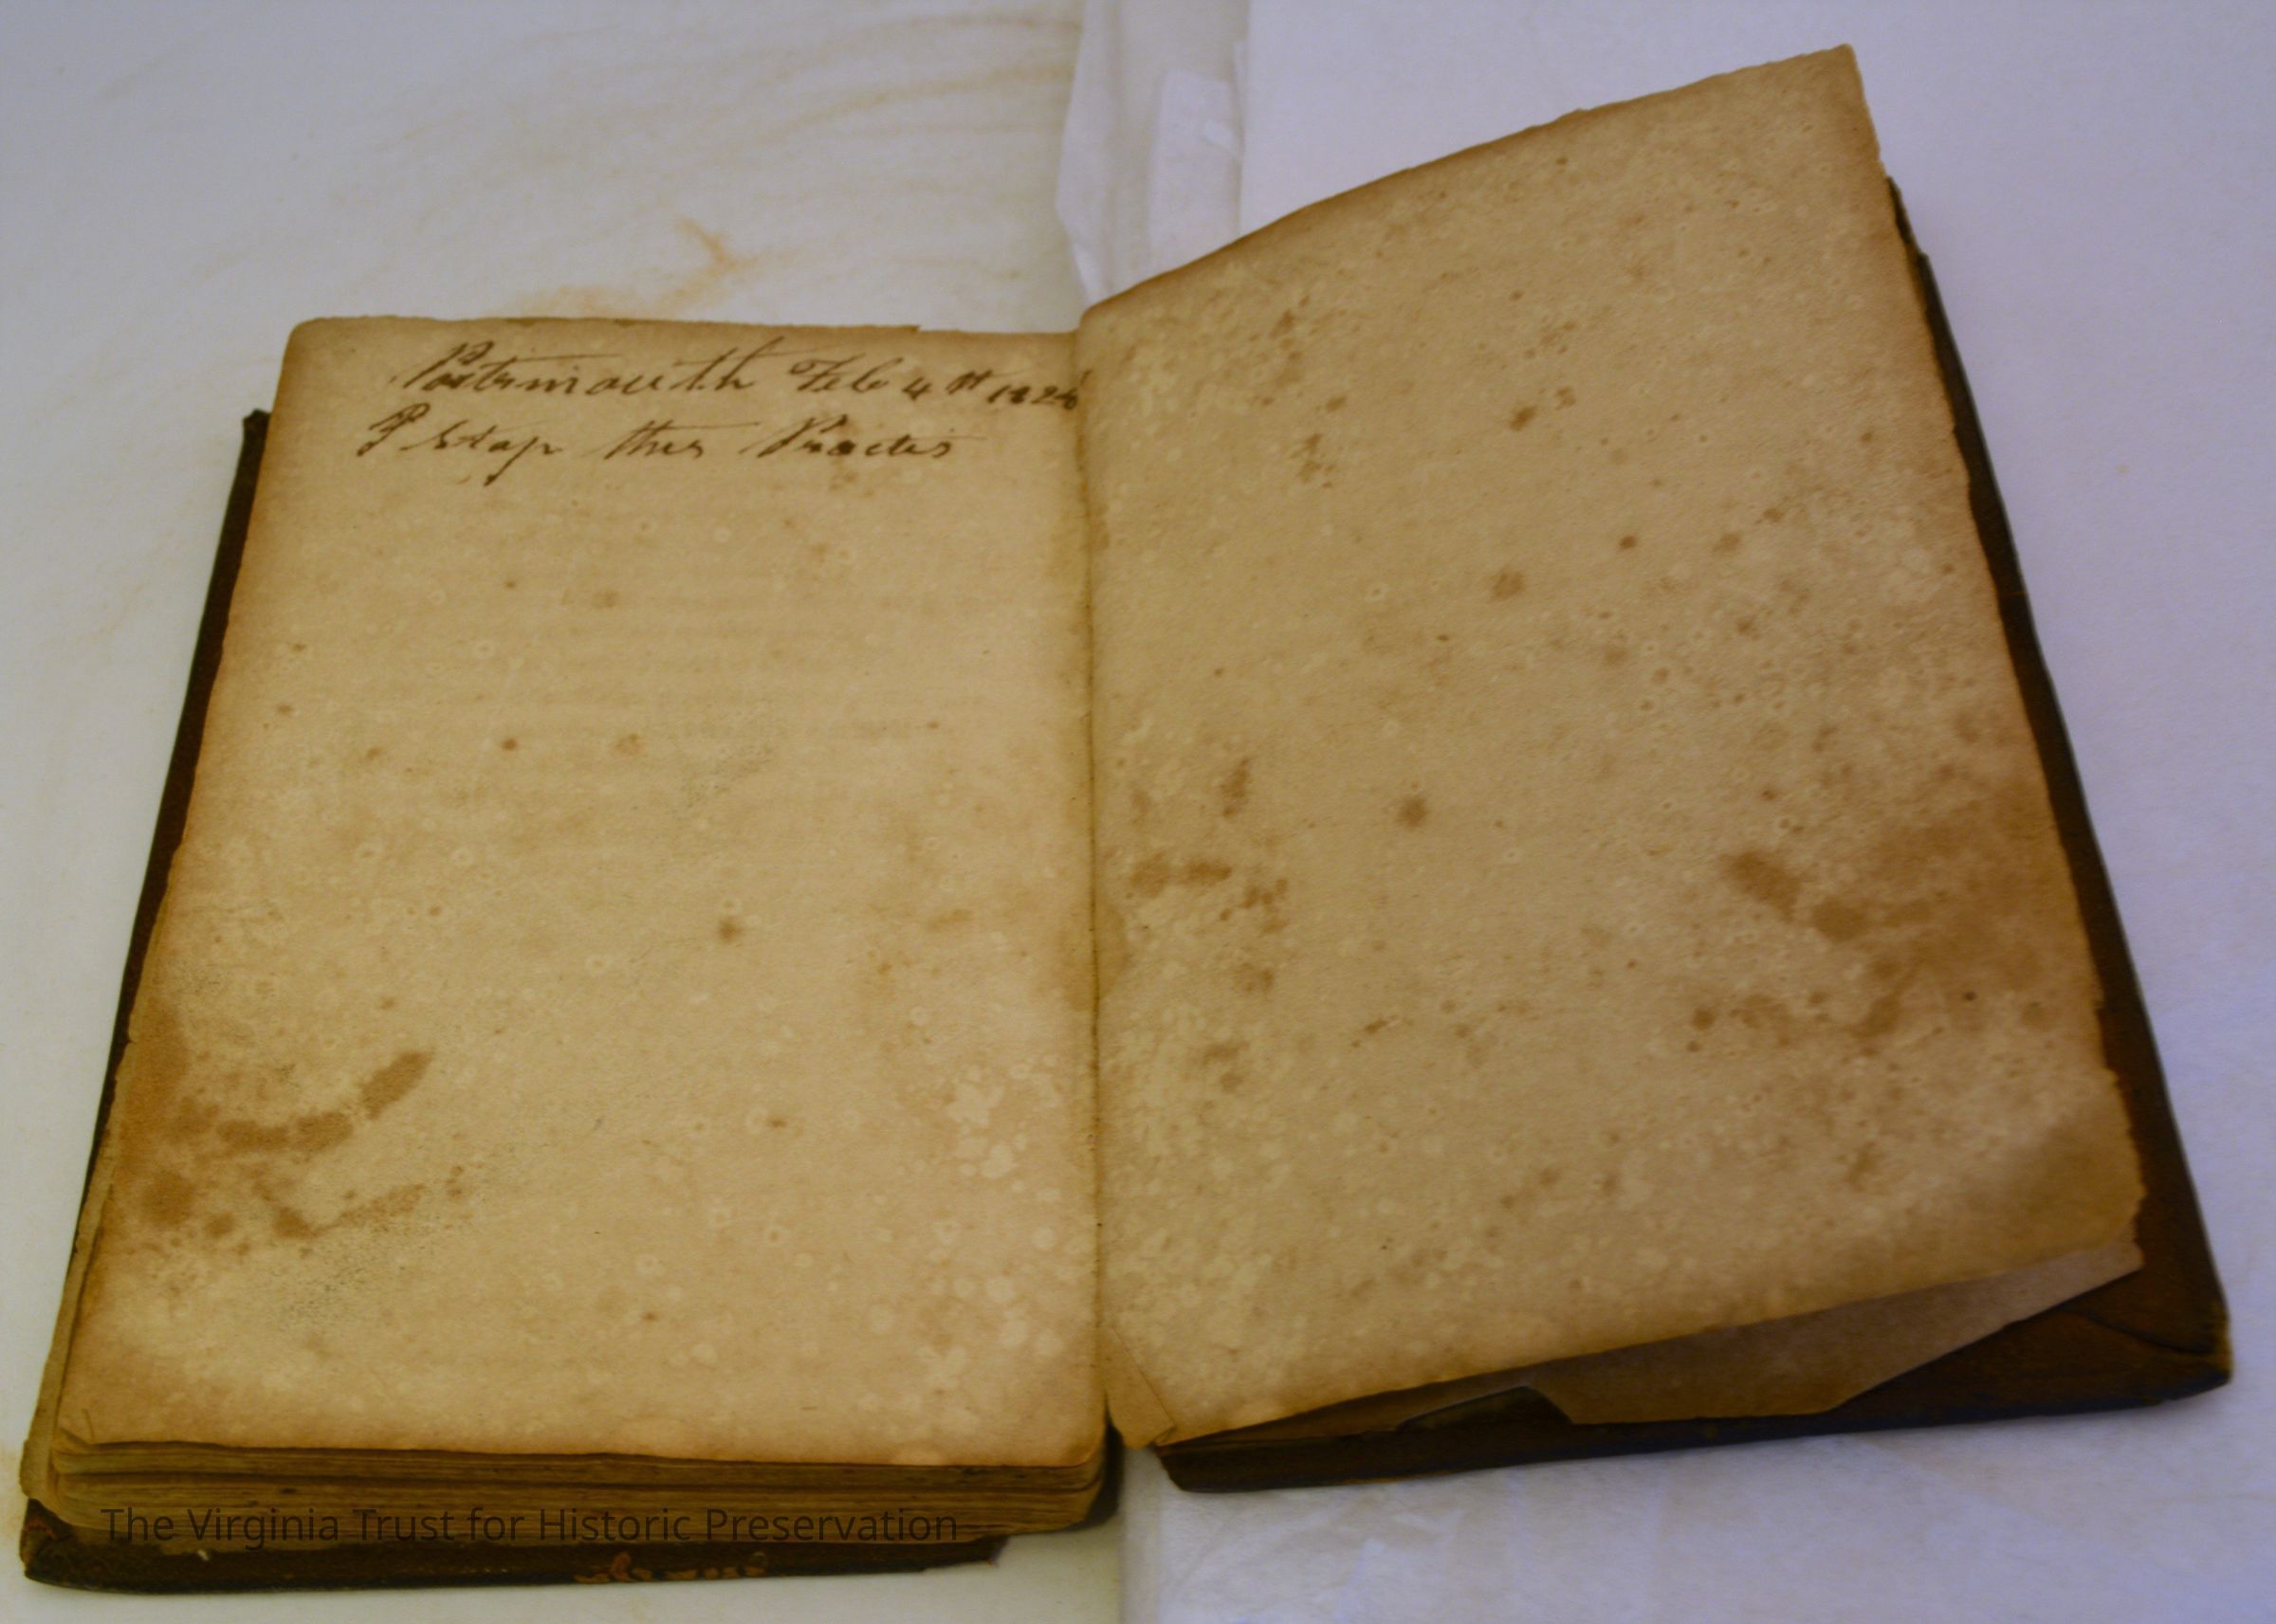 Portsmouth Feb 4th 182
I stop this
The Virginia Trust for Historic Preservation